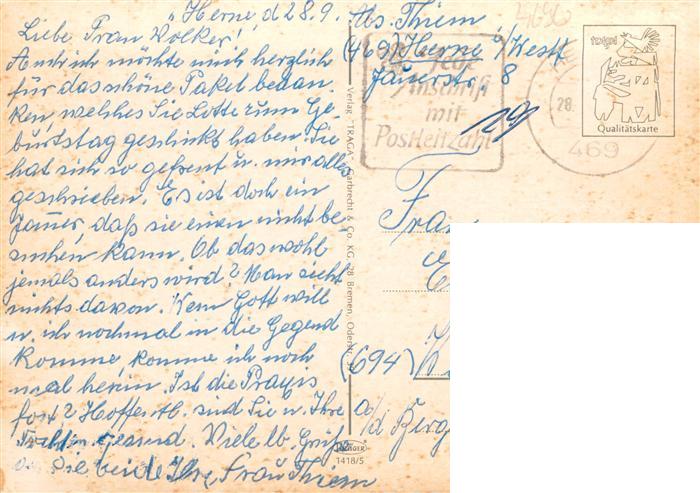 Herne, d 28.9.
Liebe Frau Volker!
Auch ich möchte mich herzlich
für das schöne Paket bedan-
ken, welches Sie Lotte zum Ge-
burtstag geschickt haben. Sie
hat sich so gefreut u. mir alles
geschrieben. Es ist doch ein
Jammer, daß sie einen nicht be-
suchen kann. Ob das wohl
jemals anders wird? Man sieht
nichts davon. Wenn Gott will
u. ich nochmal in die Gegend
komme, komme ich noch
mal herein. Ist die Praxis
fort? Hoffentl. sind Sie u. Ihre
gesund. Viele lb. Grüße
Sie beide Ihre Frau Thiem
Abs. Thiem
(469) Herne /Westf
Jauerstr. 8
Anschrift
mit
Postleitzahl
28.
469
Qualitätskarte
Verlag "TRAGA" Garbrecht & Co. KG. 28 Bremen, Oderstr.
Frau
(694)
a/d Berg
1418/5